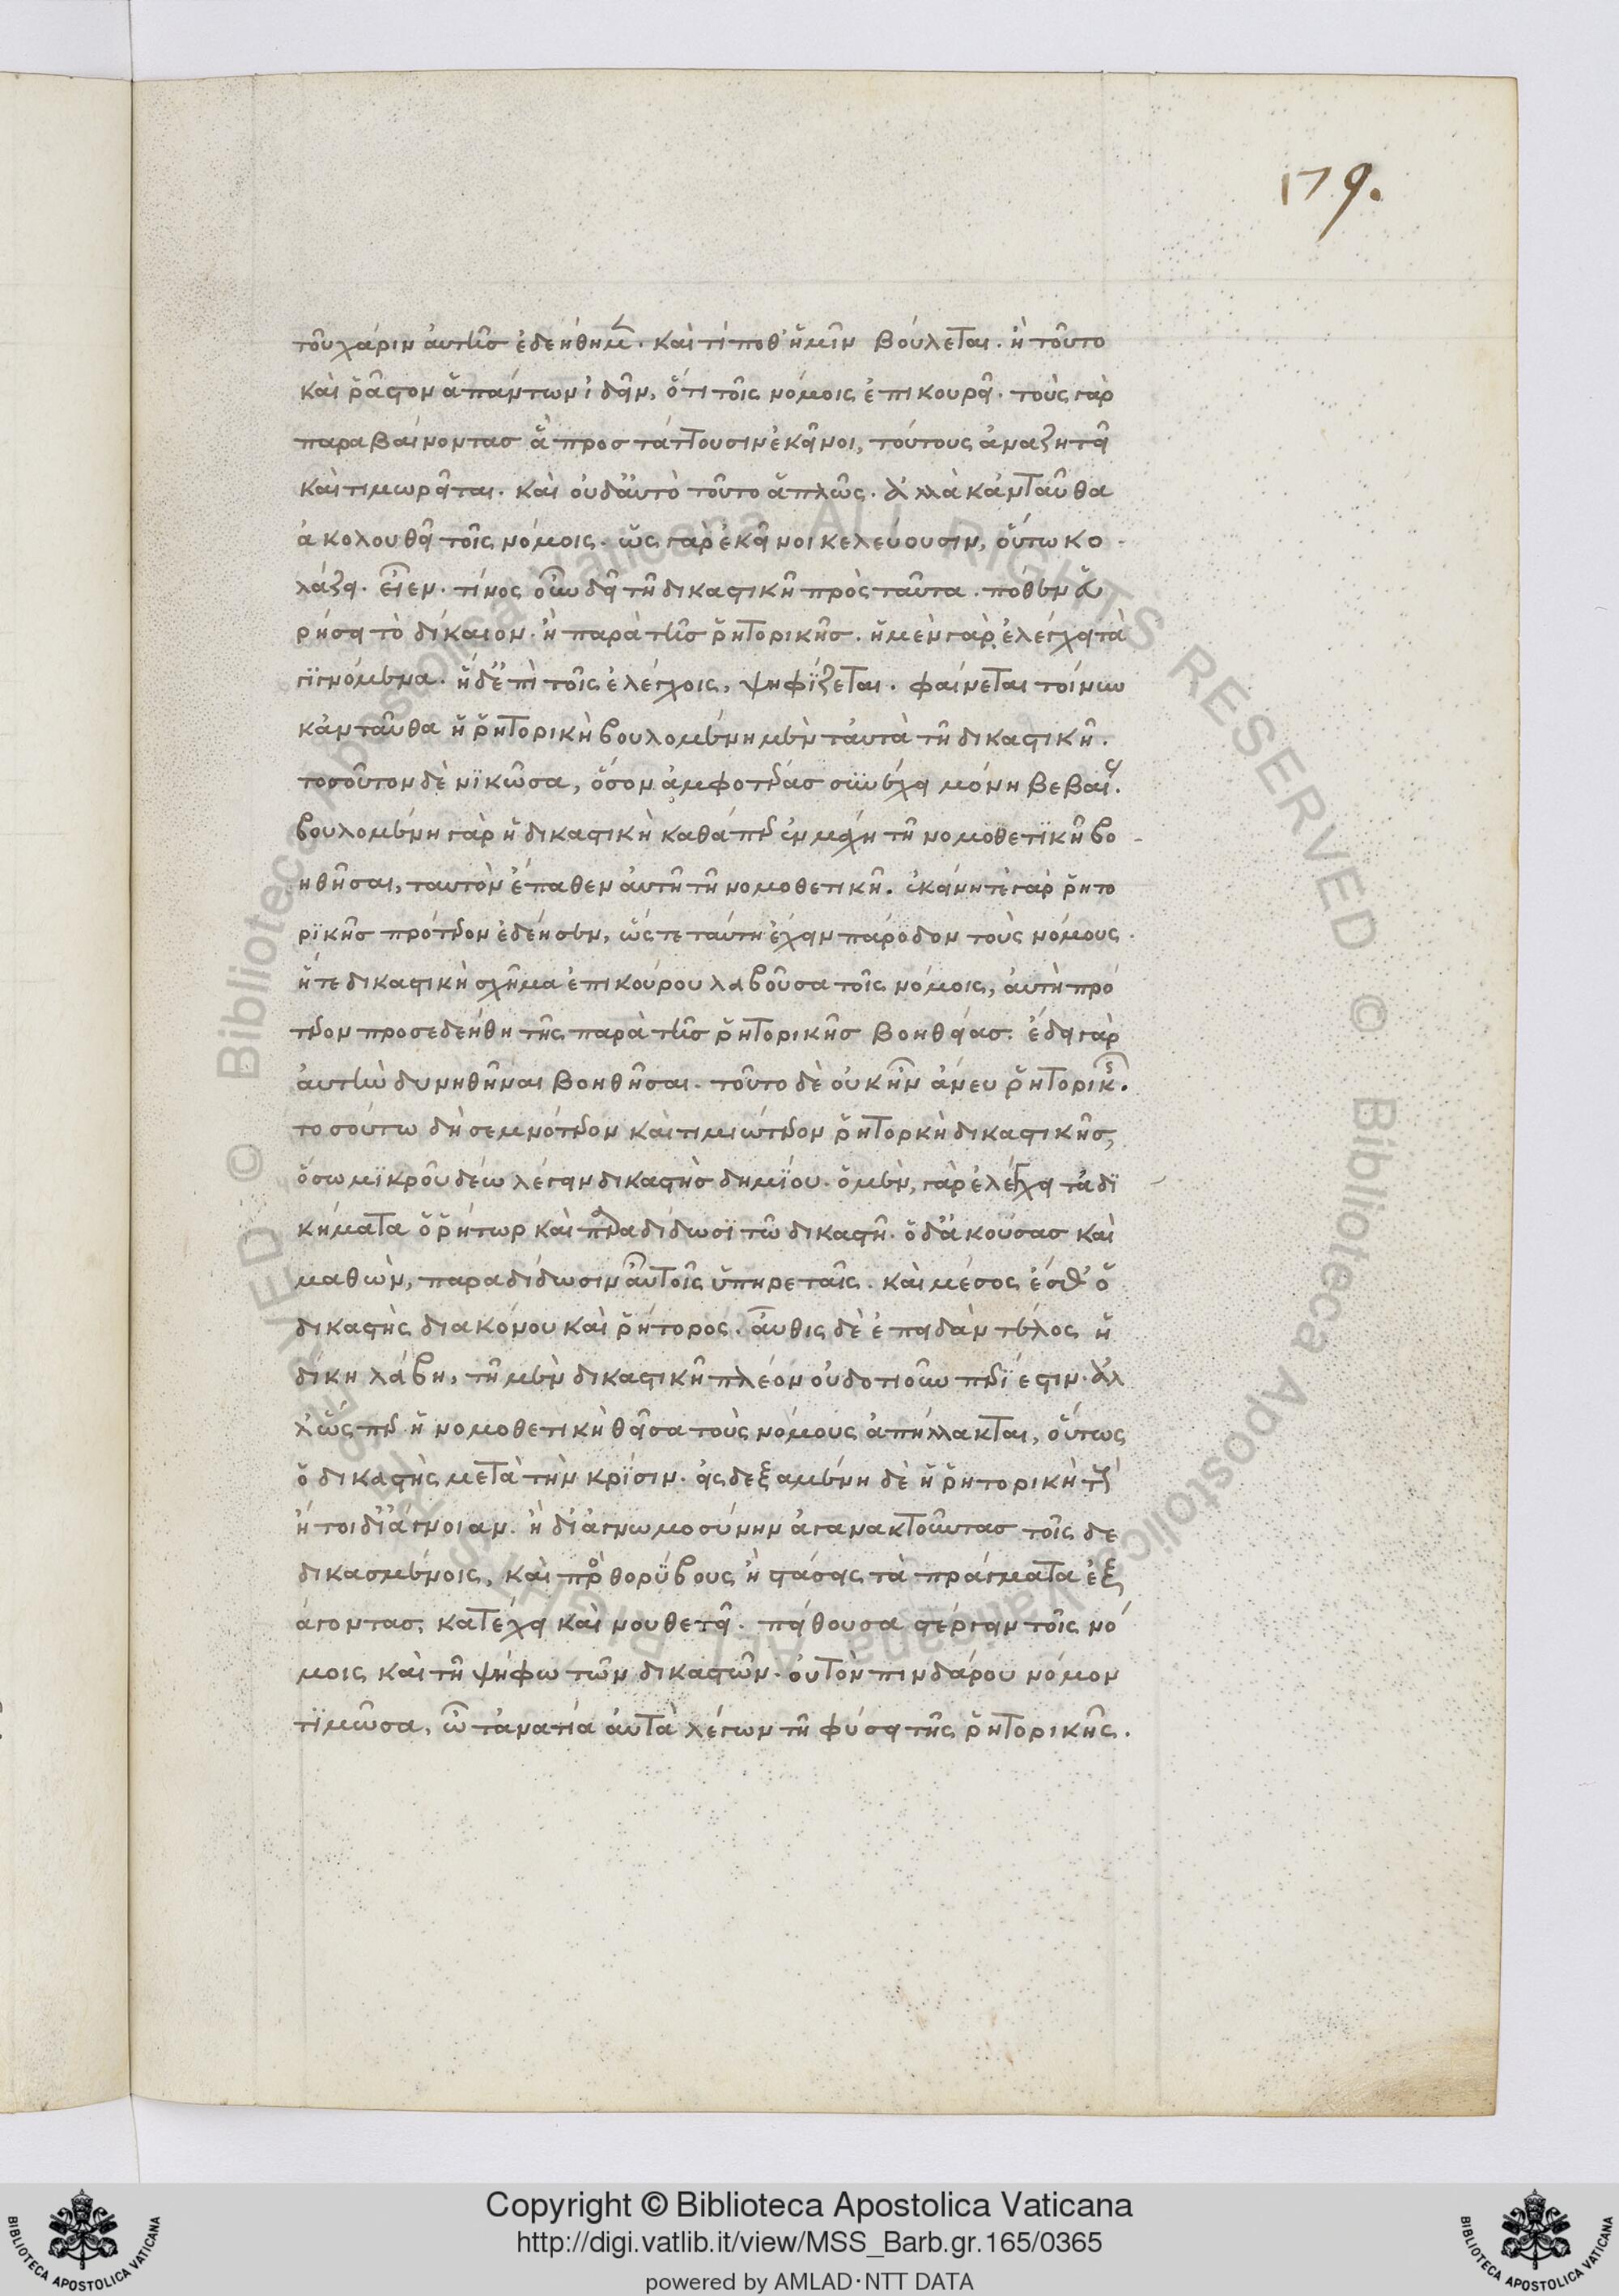 179.
τοῦ χάριν αὐτῆς ἐδεήθημεν. καὶ τί ποθ' ἡμῖν βούλεται. ἢ τοῦτο
καὶ ῥᾷστον ἁπάντων ἰδεῖν, ὅτι τοῖς νόμοις ἐπικουρεῖ. τοὺς γὰρ
παραβαίνοντας ἃ προστάττουσιν ἐκεῖνοι, τούτους ἀναζητεῖ
καὶ τιμωρεῖται. καὶ οὐδ' αὐτὸ τοῦτο ἁπλῶς. ἀλλὰ κἀνταῦθα
ἀκολουθεῖ τοῖς νόμοις. ὡς γὰρ ἐκεῖνοι κελεύουσιν, οὕτω κο-
λάζει. εἶεν. τίνος οὖν δεῖ τῇ δικαστικῇ πρὸς ταῦτα. πόθεν εὑ
ρήσει τὸ δίκαιον. ἢ παρὰ τῆς ῥητορικῆς. ἡ μὲν γὰρ ἐλέγχει τὰ
γιγνόμενα. ἡ δ' ἐπὶ τοῖς ἐλέγχοις, ψηφίζεται. φαίνεται τοίνυν
κἀνταῦθα ἡ ῥητορικὴ βουλομένη μὲν ταὐτὰ τῇ δικαστικῇ.
τοσοῦτον δὲ νικῶσα, ὅσον ἀμφοτέρας συνέχει μόνη βεβαίως.
βουλομένη γὰρ ἡ δικαστικὴ καθάπερ ἐν μάχῃ τῇ νομοθετικῇ βο-
ηθῆσαι, ταυτὸν ἔπαθεν αὐτῇ τῇ νομοθετικῇ. ἐκείνη τε γὰρ ῥητο
ρικῆς πρότερον ἐδέησεν, ὥστε ταύτῃ ἔχειν πάροδον τοὺς νόμους.
ἥ τε δικαστικὴ σχῆμα ἐπικούρου λαβοῦσα τοῖς νόμοις, αὐτὴ πρό
τερον προσεδεήθη τῆς παρὰ τῆς ῥητορικῆς βοηθείας. ἔδει γὰρ
αὐτὴν δυνηθῆναι βοηθῆσαι. τοῦτο δὲ οὐκ ἦν ἄνευ ῥητορικῆς.
τοσούτω δὴ σεμνότερον καὶ τιμιώτερον ῥητορκὴ δικαστικῆς,
ὅσω μικροῦ δέω λέγειν δικαστὴς δημίου. ὁ μὲν, γὰρ ἐλέγχει τἀδι
κήματα ὁ ῥήτωρ καὶ παραδίδωσι τῷ δικαστῇ. ὁ δ' ἀκούσας καὶ
μαθὼν, παραδίδωσιν αὐτοῖς ὑπηρέταις. καὶ μέσος ἐσθ' ὁ
δικαστὴς διακόνου καὶ ῥήτορος. αὖθις δὲ ἐπειδὰν τέλος ἡ
δίκη λάβη, τῇ μὲν δικαστικῇ πλέον οὐδοτιοῦν περίεστιν. ἀλ
λ' ὥσπερ ἡ νομοθετικὴ θεῖσα τοὺς νόμους ἀπήλλακται, οὕτως
ὁ δικαστὴς μετὰ τὴν κρίσιν. εἰσδεξαμένη δὲ ἡ ῥητορικὴ τοὺς
ἤτοι δι' ἄγνοιαν. ἢ δι' ἀγνωμοσύνην ἀγανακτοῦντας τοῖς δε
δικασμένοις, καὶ πρὸς θορύβους ἢ στάσεις τὰ πράγματα ἐξ
άγοντας, κατέχει καὶ νουθετεῖ. πείθουσα στέργειν τοῖς νό
μοις καὶ τῇ ψήφω τῶν δικαστῶν. οὐ τὸν πινδάρου νόμον
τιμῶσα, ὦ τἀναντία αὐτὰ λέγων τῇ φύσει τῆς ῥητορικῆς.
Copyright © Biblioteca Apostolica Vaticana
http://digi.vatlib.it/view/MSS_Barb.gr.165/0365
powered by AMLAD·NTT DATA